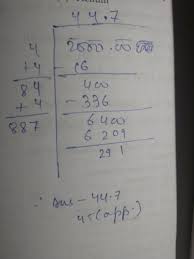 44.7
4 2000.00
+4 - 16
84 400
+4 - 336
887 6400
6209
291
∴ Ans - 44.7
45 (app.)